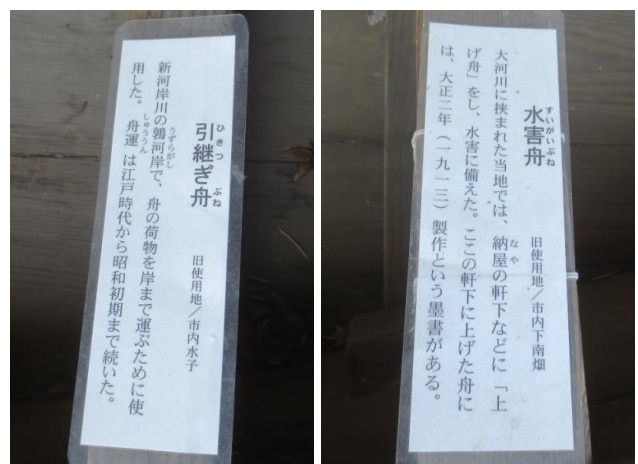 引継ぎ舟
ひきつ
ぶね
旧使用地／市内水子
新河岸川の鶉河岸で、舟の荷物を岸まで運ぶために使
うずらがし
用した。舟運は江戸時代から昭和初期まで続いた。
しゅううん
水害舟
すいがいぶね
旧使用地／市内下南畑
大河川に挟まれた当地では、納屋の軒下などに「上
なや
げ舟」をし、水害に備えた。ここの軒下に上げた舟に
は、大正二年（一九一三）製作という墨書がある。